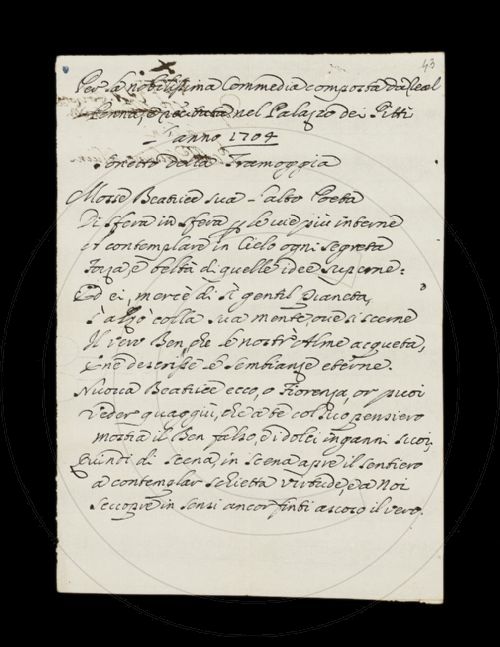 43
Per la nobilissima Commedia composta da Real
Penna, e recitata nel Palazzo dei Pitti
L'anno 1704
Sonetto della Tramoggia
Mosse Beatrice sua l'alto Poeta
Di sfera in sfera p le vie più interne
A contemplare in Cielo ogni segreta
Forza, e beltà di quelle idee superne:
Ed ei, mercè di sì gentil pianeta,
S'alzò colla sua mente, ove si scerne
Il vero Ben, che le nostr'Alme acqueta,
E ne descrisse le sembianze eterne.
Nuova Beatrice ecco, o Fiorenza, or puoi
Veder quaggiù, che a te col suo pensiero
mostra il Ben falso, e i dolci inganni suoi,
Quindi di scena, in scena apre il sentiero
a contemplar schietta virtude, e a Noi
scuopre in sensi ancor finti ascoso il vero.